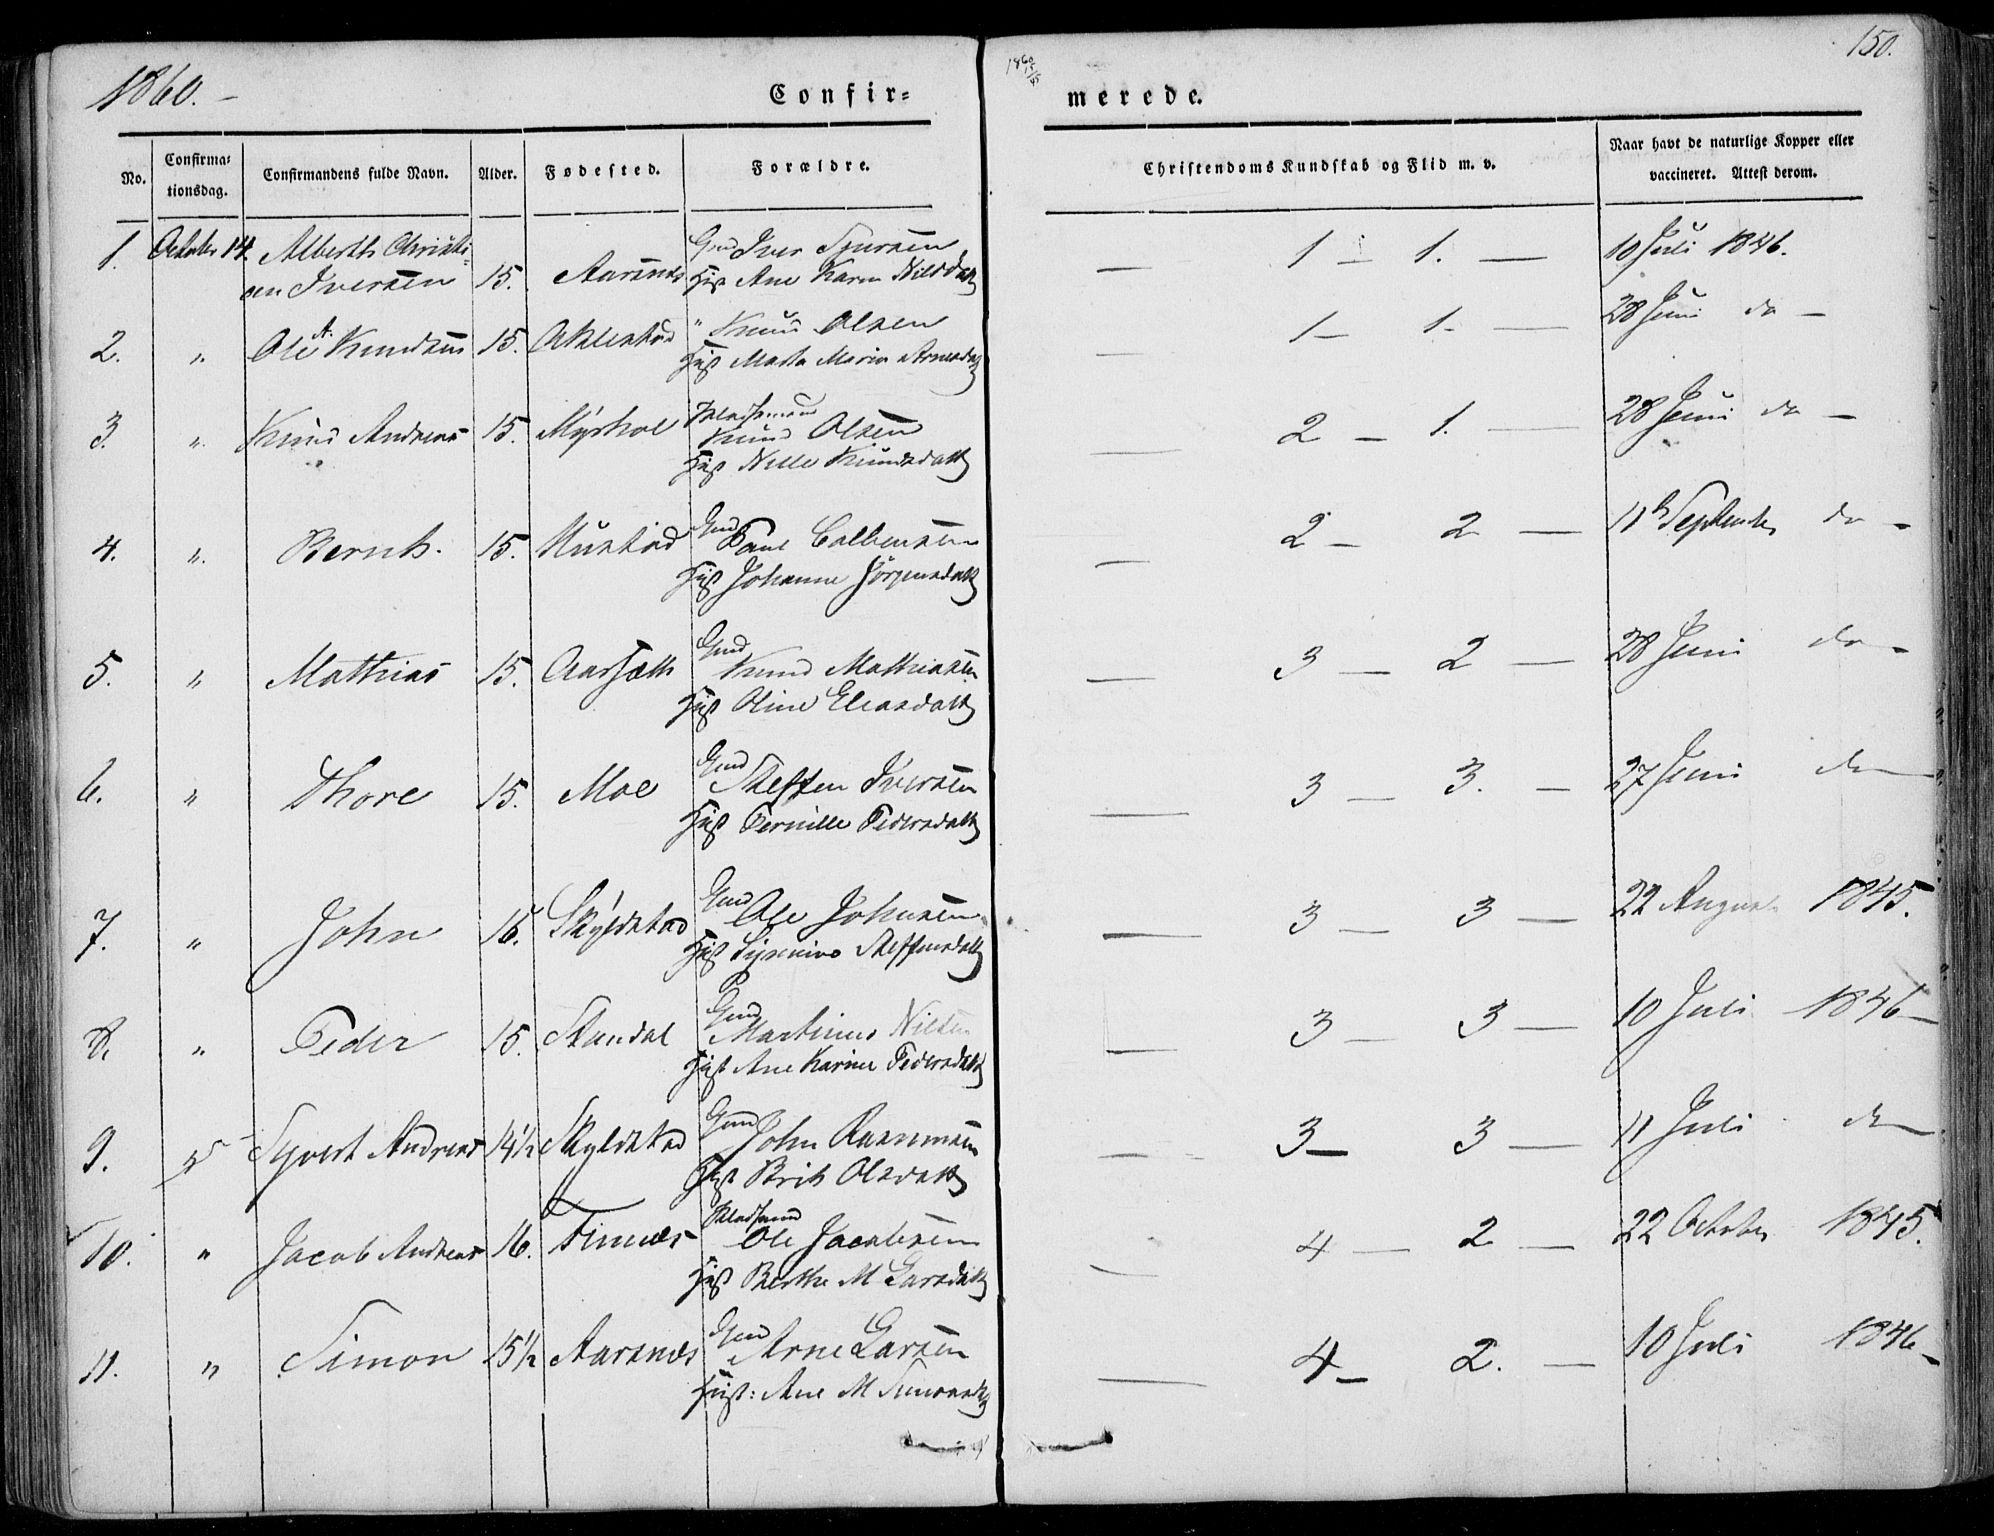 1860.
Confir=
No.
Confirma=
tionsdag.
Confirmandens fulde Navn.
Alder.
Fødested.
Forældre.
1. October 14. Alberth Christi=
an Iversen 15. Aarsnæs Gmd Iver Sjursen
Hust Ane Karen Nilsdatt
2. " Ole A. Knudsen 15. Aklestad " Knud Olsen
Hust Marta Maria Arnesdatt
3. " Knud Andreas 15. Myrhol Pladsmand
Knud Olsen
Hust Nille Knudsdatt
4. " Bernt. 15. Hustad Gmd
Paul Colbensen
Hust Johanne Jörgensdatt
5. " Mathias 15. Aarsæth Gmd
Knud Mathiasen
Hust Oline Eliasdatt
6. " Thore 15. Moe Gmd
Steffen Iversen
Hust Pernille Pedersdatt
7. " John 15. Skyldstad Gmd
Ole Johnsen
Hust Synnive Steffensdatt
8. " Peder 15. Standal Gmd
Martinus Nilsen
Hust Ane Karine Pedersdatt
9. " Syvert Andreas 14½ Skyldstad Gmd
John Rasmusen
Hust Brit Olsdatt
10. " Jacob Andreas 16. Finnæs Pladsmand
Ole Jacobsen
Hust Berthe M Larsdatt
11. " Simon 15½ Aarsnæs Gmd
Arne Larsen
Hust: Ane M Simonsdatt
150.
1860
merede.
Christendoms Kundskab og Flid m. v.
Naar havt de naturlige Kopper eller
vaccineret. Attest derom.
— 1 — 1. — 10 Juli 1846.
— 1 — 1. — 28 Juni do —
— 2 — 1. — 28 Juni do —
— 2 — 2 — 11 September do —
— 3 — 2 — 28 Juni do —
— 3 — 3. — 27 Juni do
— 3 — 3 — 22 August 1845.
— 3 — 3 — 10 Juli 1846 —
— 3 — 3 — 11 Juli do
— 4 — 2 — 22 October 1845.
— 4 — 2. — 10 Juli 1846 —